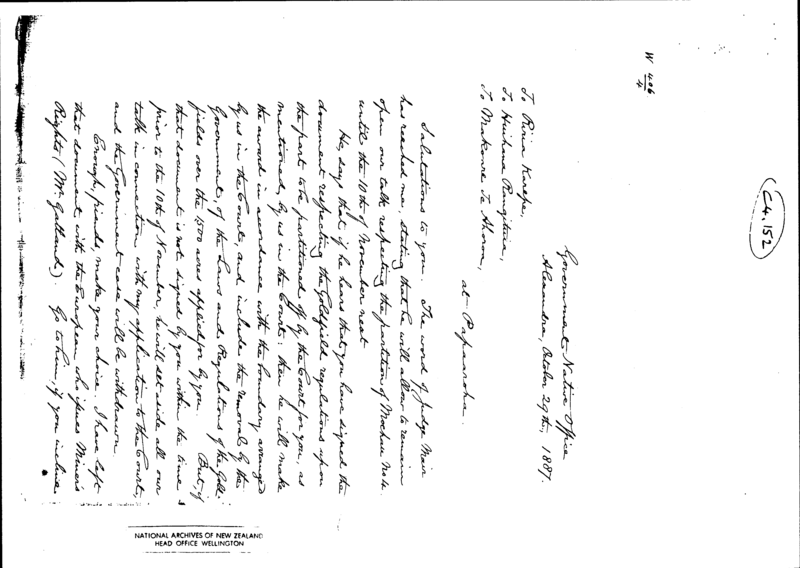 C4.152
W 406/4
Government Native Office
Alexandra, October 29th, 1887.
To Riria Karepe,
To Hirihana
To Te
at Paparoha.
Salutations to you. The word of Judge Mair
has reached me, stating that he will allow to remain
open our talk respecting the partition of Moehau No 4
until the 10th of November next
He says that if he hears that you have signed the
document respecting the Goldfield regulations upon
the part to be partitioned off by the Court for you, as
mentioned, by us in the Court; then he will make
the award in accordance with the boundary arranged
by us in the Court, and include the removal by the
Government, of the Laws and Regulations of the Gold-
fields over the 1500 acres applied for by you. But, if
that document is not signed by you within the time
prior to the 10th of November he will set aside all our
talk in connection with my application to the Court,
and the Government case will be withdrawn
Enough, friends, make your choice. I have left
that document with the European who issues Miner's
Rights (Mr Galland). Go to him, if you include
NATIONAL ARCHIVES OF NEW ZEALAND
HEAD OFFICE WELLINGTON